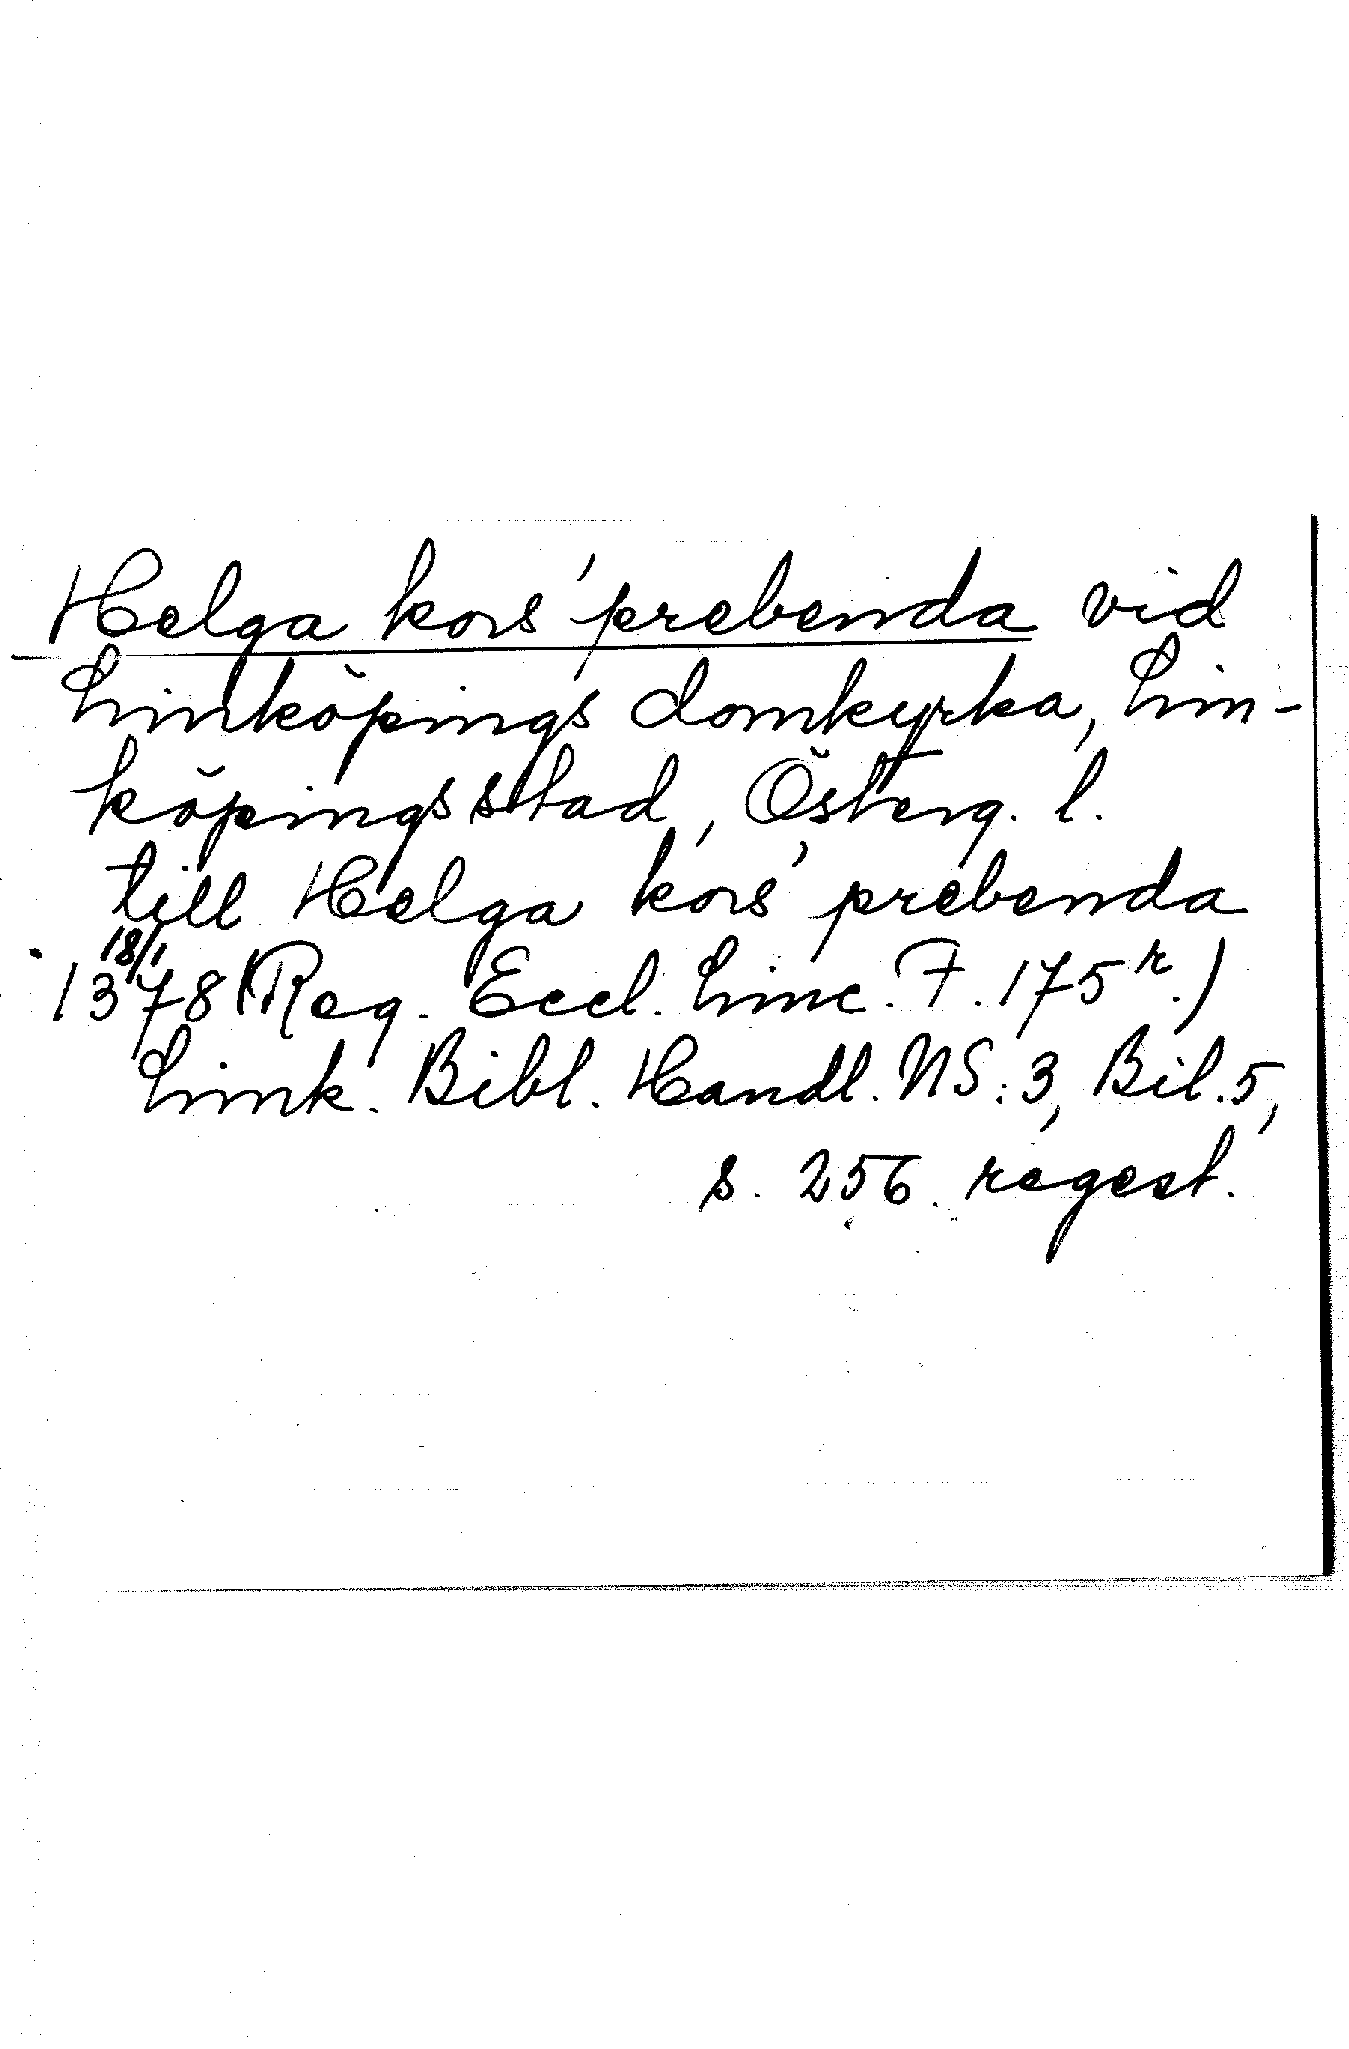 Helga kors' prebenda vid
Linköpings domkyrka, Lin-
köpings stad, Österg. l.
till Helga kors' prebenda
18/1
1378 (Reg. Eccl. Linc. F. 175r.)
Link. Bibl. Handl. NS: 3, Bil. 5,
s. 256. regest.